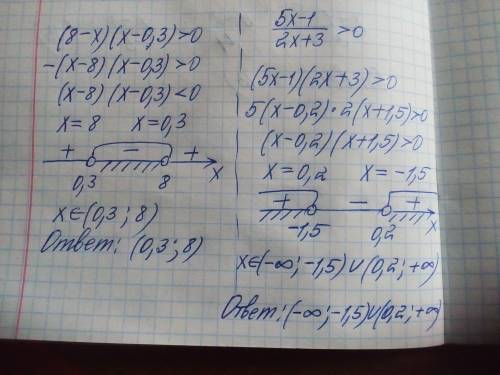 (8-x)(x-0,3)>0
-(x-8)(x-0,3)>0
(x-8)(x-0,3)<0
x=8 x=0,3
+ - +
0,3 8 x
x∈(0,3;8)
Ответ: (0,3;8)
5x-1
2x+3 >0
(5x-1)(2x+3)>0
5(x-0,2)·2(x+1,5)>0
(x-0,2)(x+1,5)>0
x=0,2 x=-1,5
+ - +
-1,5 0,2 x
x∈(-∞;-1,5)∪(0,2;+∞)
Ответ:(-∞;-1,5)∪(0,2;+∞)